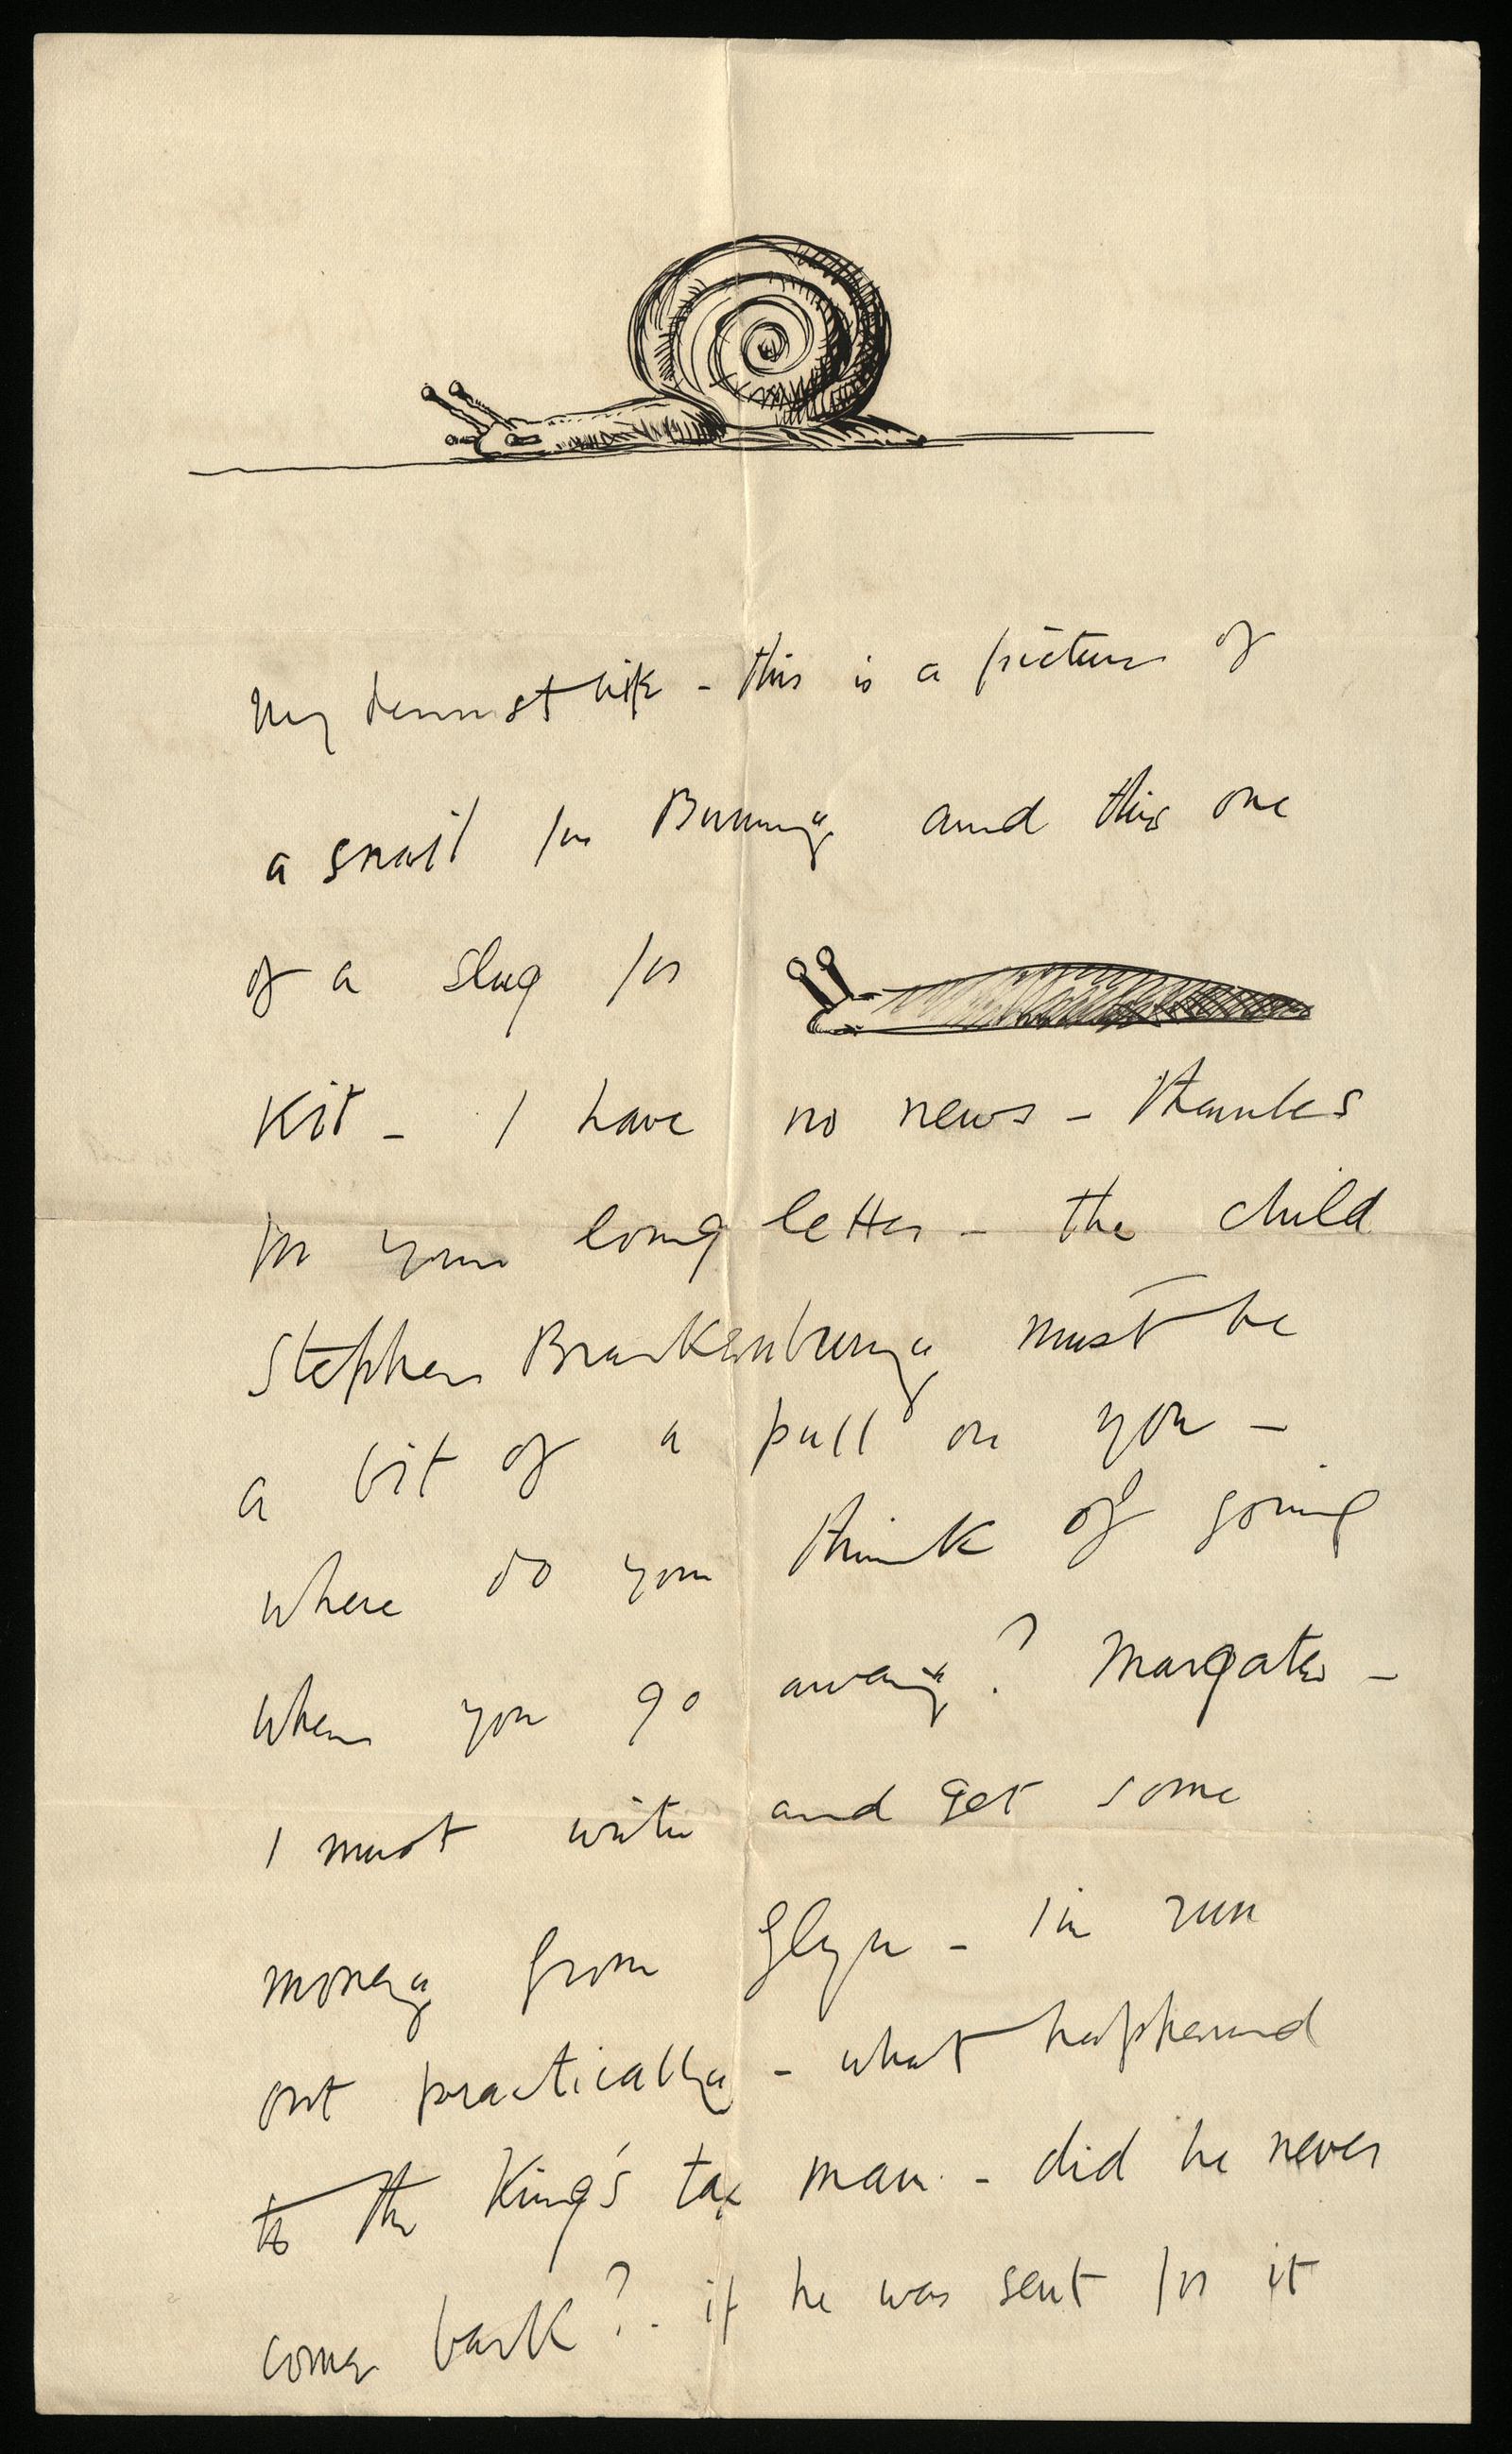 My dearest wife - this is a picture of
a snail for Bunny and this one
of a slug for
Kit - I have no news - Thanks
for your long letter - the child
Stephen Brackenbury must be
a bit of a pull on you -
where do you think of going
when you go away? Margate -
I must write and get some
money from Glyn - I'm run
out practically - what happened
to the King's tax man - did he never
come back? - if he was sent for it